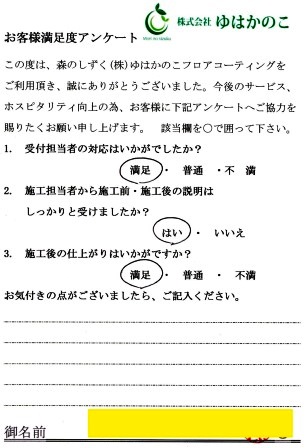 株式会社 ゆはかのこ
お客様満足度アンケート
この度は、森のしずく(株)ゆはかのこフロアコーティングを
ご利用頂き、誠にありがとうございました。今後のサービス、
ホスピタリティ向上の為、お客様に下記アンケートへご協力を
賜りたくお願い申し上げます。 該当欄を○で囲って下さい。
1. 受付担当者の対応はいかがでしたか?
満足 ・ 普通 ・不 満
2. 施工担当者から施工前・施工後の説明は
しっかりと受けましたか?
はい ・ いいえ
3. 施工後の仕上がりはいかがですか?
満足 ・ 普通 ・ 不満
お気付きの点がございましたら、ご記入ください。
御名前